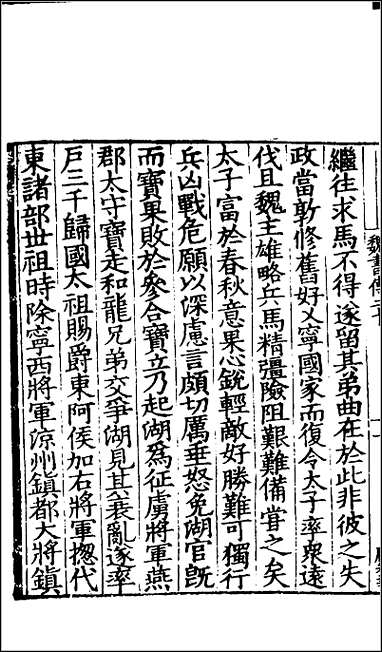 繼往求馬不得遂留其弟曲在於此非彼之失
政當敦修舊好乂寧國家而復令太子率衆遠
伐且魏主雄略兵馬精彊險阻艱難備甞之矣
太子富於春秋意果心銳輕敵好勝難可獨行
兵凶戰危願以深慮言頗切厲垂怒免湖官旣
而寶果敗於參合寶立乃起湖爲征虜將軍燕
郡太守寶走和龍兄弟交爭湖見其衰亂遂率
戶三千歸國太祖賜爵東阿侯加右將軍摠代
東諸部世祖時除寧西將軍涼州鎮都大將鎮